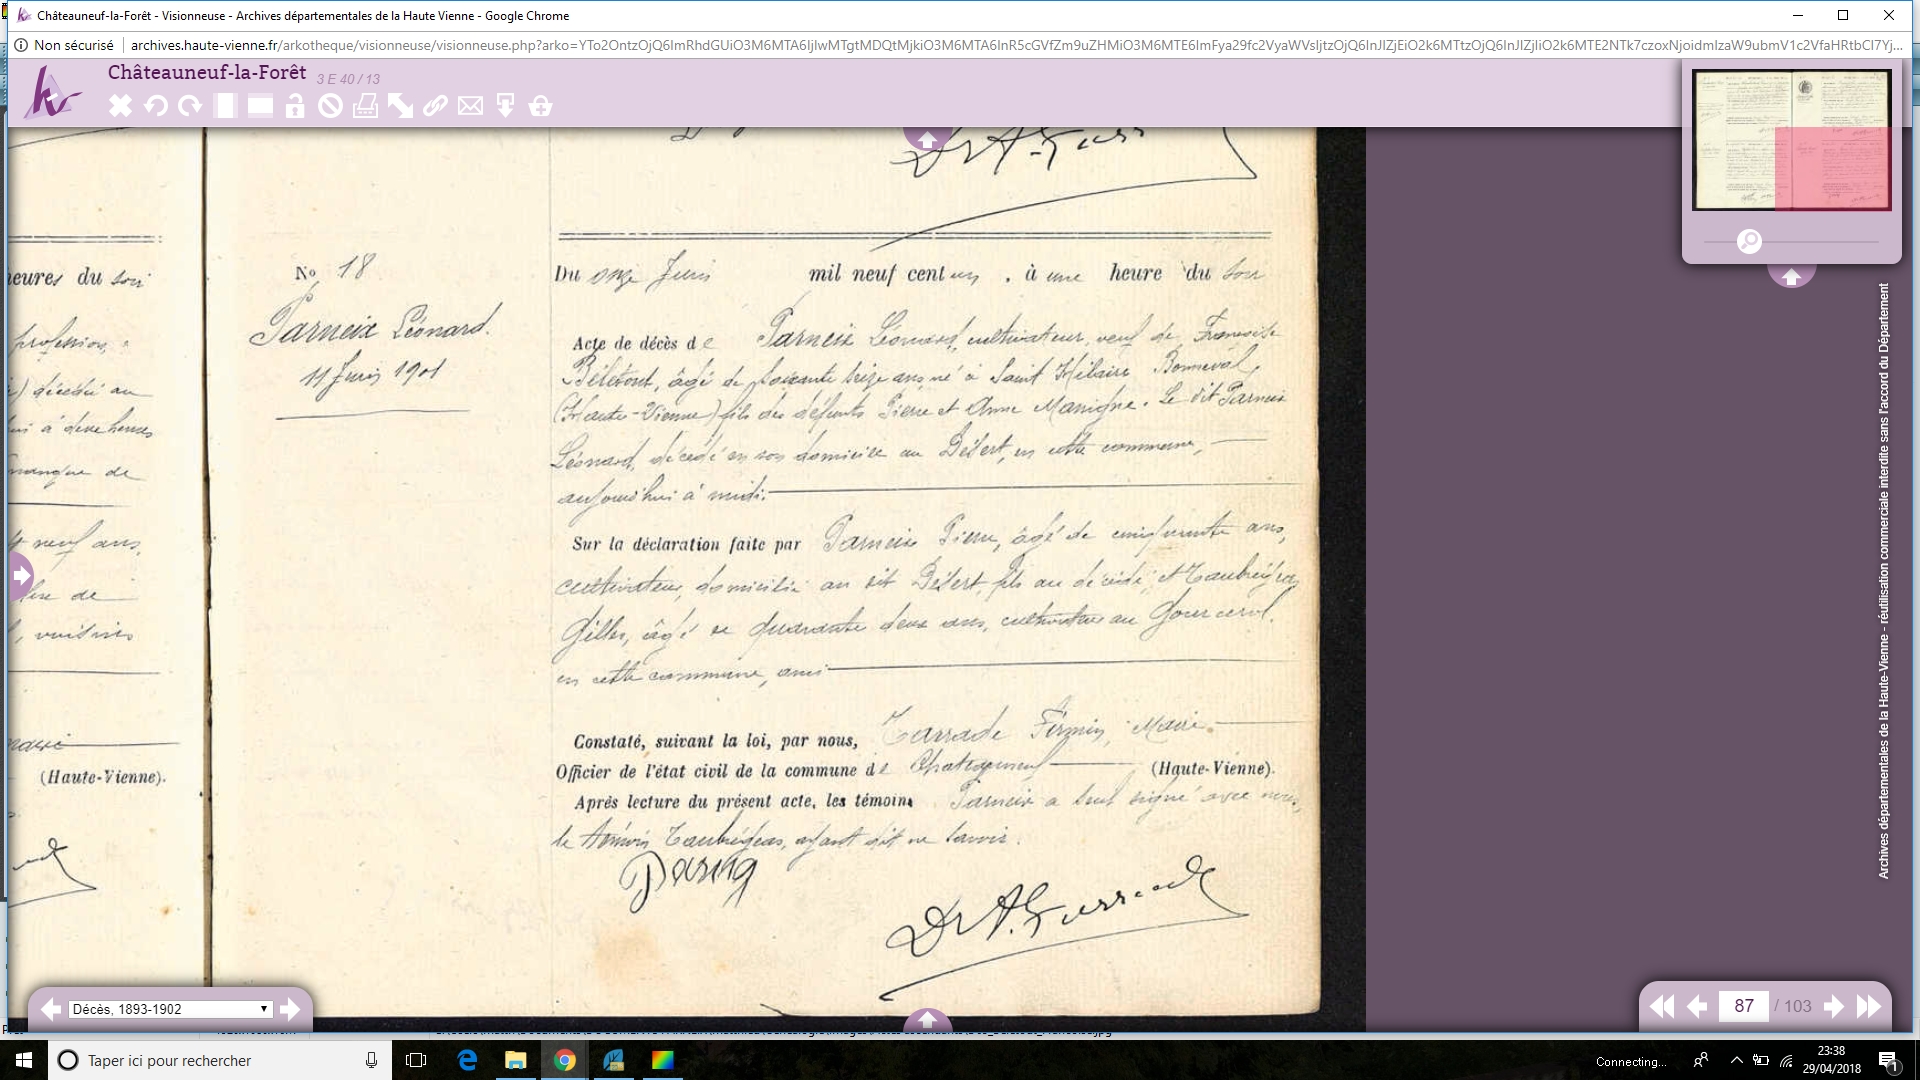 Châteauneuf-la-Forêt - Visionneuse - Archives départementales de la Haute Vienne - Google Chrome
Non sécurisé | archives.haute-vienne.fr/arkotheque/visionneuse/visionneuse.php?arko=
Châteauneuf-la-Forêt 3 E 40 / 13
heures du soir
profession,
décédé au
manque de
neuf ans,
voisins
(Haute-Vienne).
No 18
Parneix Léonard.
11 Juin 1901
Du onze Juin mil neuf cent un, à une heure du soir
Acte de décès de Parneix Léonard, cultivateur, veuf de Françoise
âgé de soixante seize ans, né à Saint Hilaire Bonneval,
(Haute-Vienne) fils des défunts Pierre et Anne Manigne. Le dit Parneix
Léonard, décédé en son domicile au Désert, en cette commune,
aujourd'hui à midi.
Sur la déclaration faite par Parneix Pierre, âgé de cinquante ans,
cultivateur, domicilié au dit Désert, fils du décédé; et
Gilles, âgé de quarante deux ans, cultivateur au
en cette commune, ami
Constaté, suivant la loi, par nous, Tarrade Firmin, Maire.
Officier de l'état civil de la commune de Chateauneuf (Haute-Vienne).
Après lecture du présent acte, les témoins Parneix a seul signé avec nous,
le témoin ayant dit ne savoir.
Archives départementales de la Haute-Vienne - réutilisation commerciale interdite sans l'accord du Département
Décès, 1893-1902
87 / 103
Taper ici pour rechercher
Connecting...
23:38
29/04/2018
1